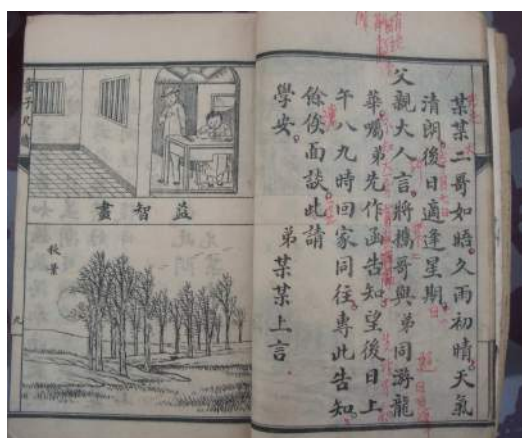 某某二哥如晤。久雨初晴。天氣
清朗。後日適逢星期。
父親大人言。將攜哥與弟同游龍
華。囑弟先作函告知。望後日上
午八九時回家同往。專此告知。
餘俟面談。此請
學安。
弟某某上言
益智畫
秋景
童子尺牘
九